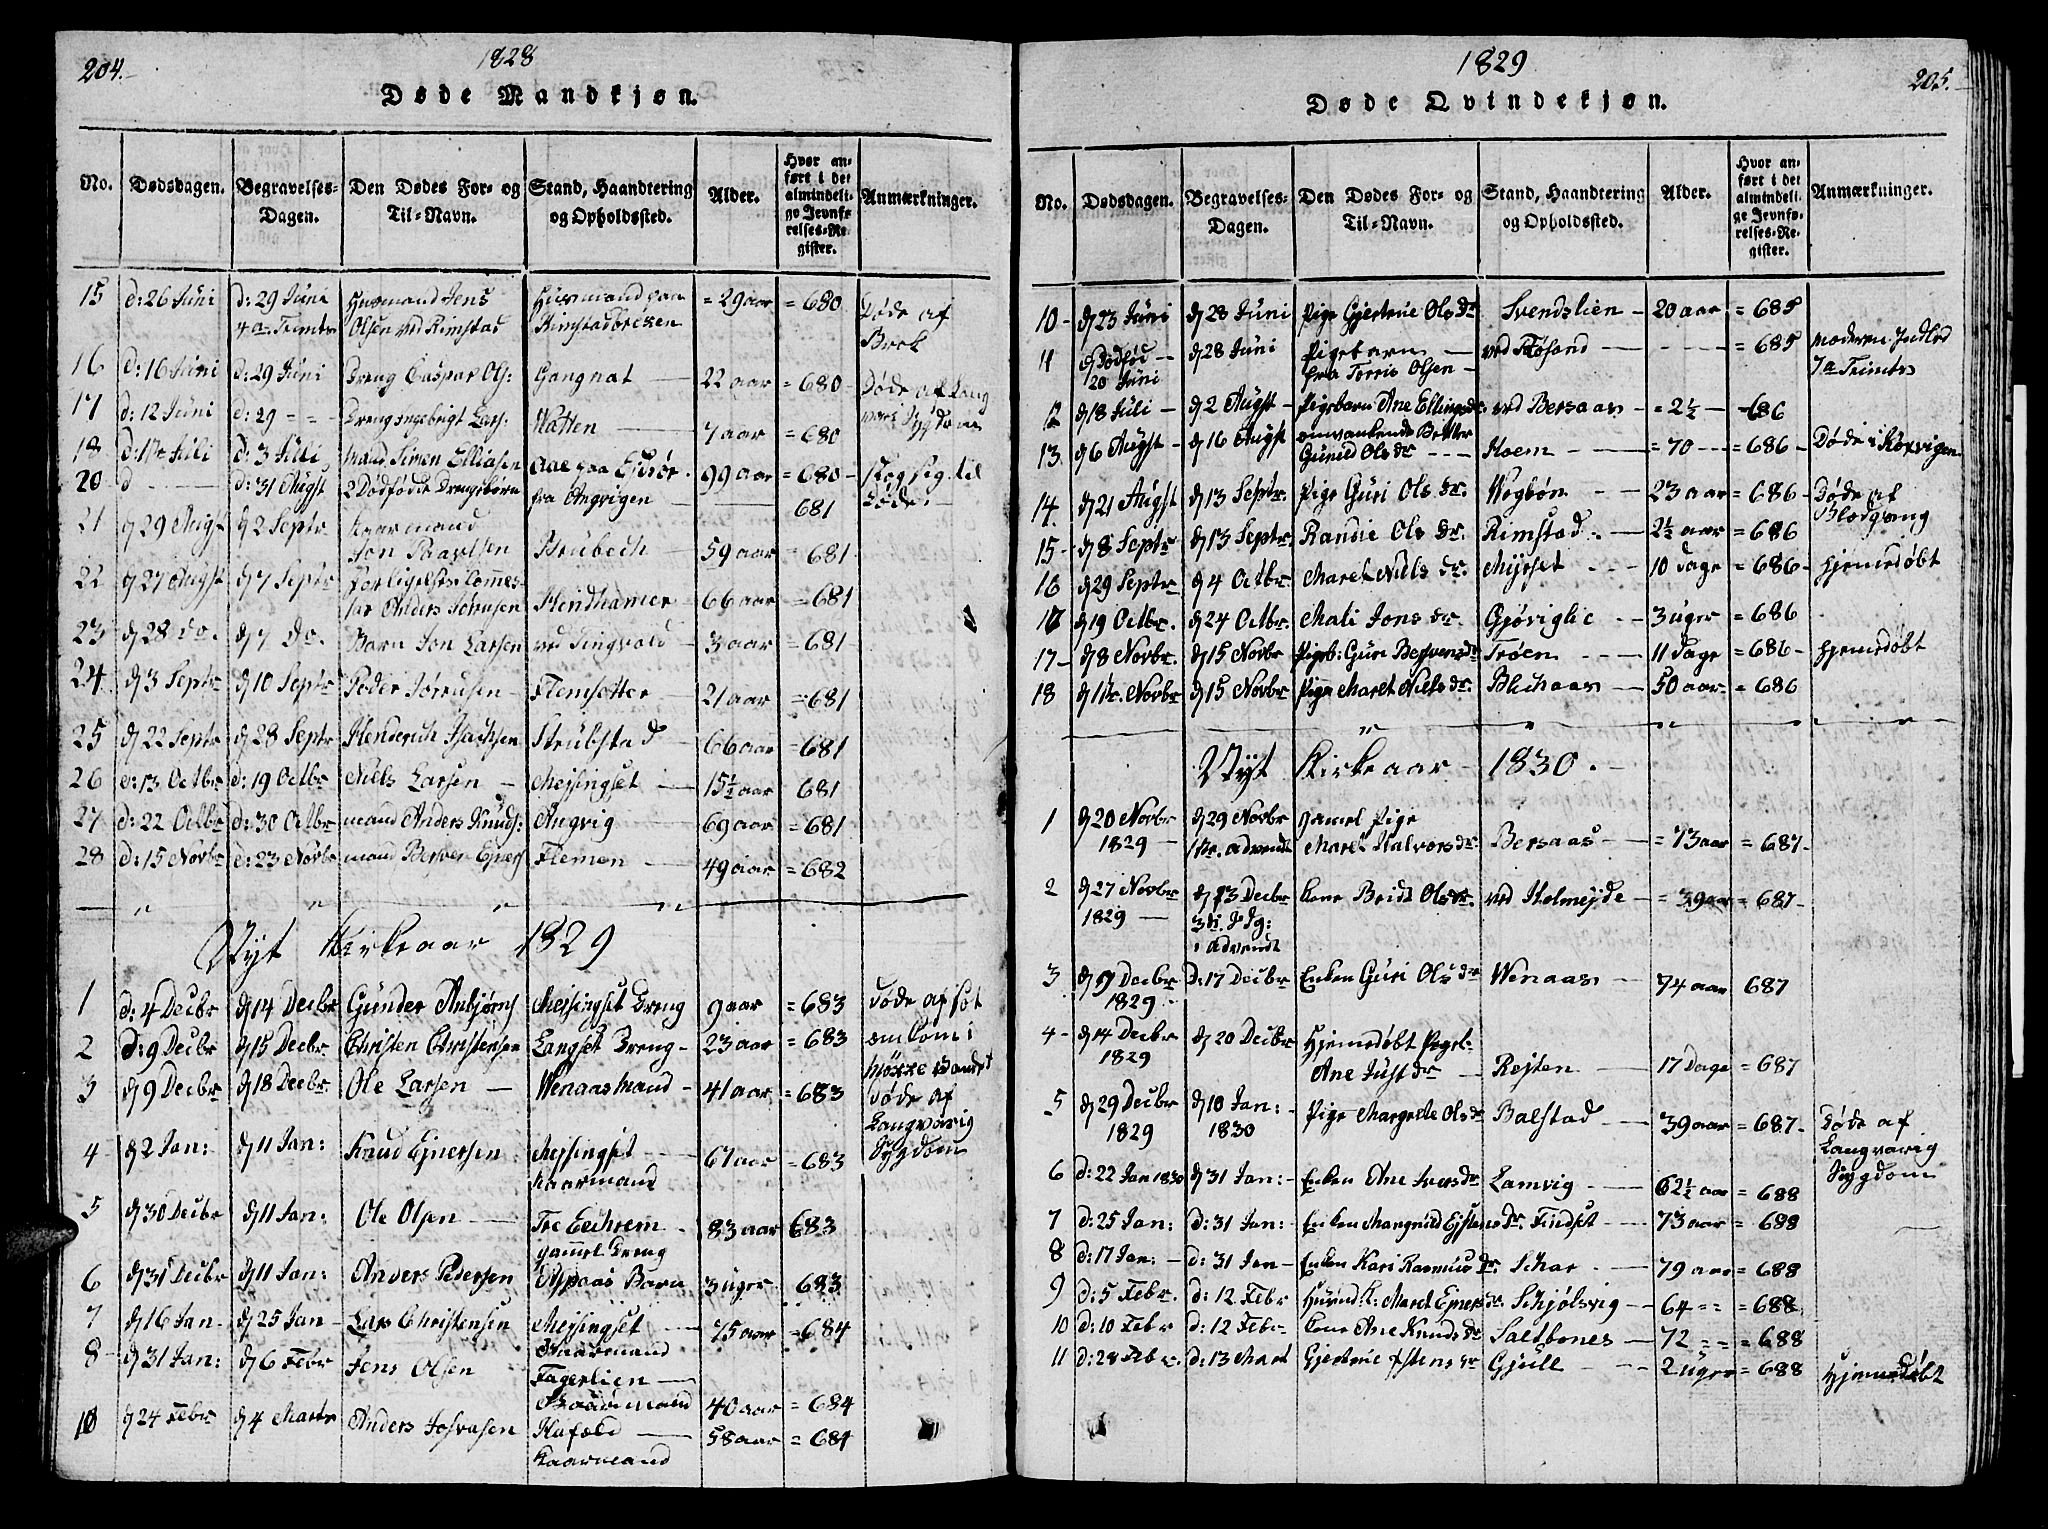 204.
1828
Døde Mandkjøn.
No. Dødsdagen. Begravelses-Dagen. Den Dødes For- og Til-Navn. Stand, Haandtering og Opholdssted. Alder. Hvor anført i det almindelige Jevnførelses-Register. Anmærkninger.
15 d: 26 Juni d: 29 Juni Huusmand Jens = 29 aar = 680 Døde af
Olsen ved Rimstad
Brok
16 d: 16 Juni d: 29 Juni Dreng Caspar Ols: Gangnat 22 aar = 680 - Døde af Lang
17 d: 12 Juni d: 29 - - Dreng Ingebrigt Lars: Natten 7 aar = 680
18 Juli d: 3 Juli Mand Simen Elliasen 99 aar = 680 - Slog sig til
20 d d: 31 Augst 2 Dødfødde Drengebørn fra Angvigen 681 Døde.
21 d 29 Augst d 2 Septr
Jon Paavlsen Brubech 59 aar = 681
22 d 27 Augst d 7 Septr Forligelses Commes-
sær Anders Sørensen Hendhamer 66 aar = 681
23 d 28 Do. d 7 Do. Barn Jon Larsen ved Tingvold 3 aar = 681
24 d 3 Septr d 10 Septr Peder Jørensen Flemsetter 21 aar = 681
25 d 22 Septr d 28 Septr Henderich Isachsen Strubstad 66 aar = 681
26 d: 13 Octbr d: 19 Octbr Niels Larsen Mejsingset 15½ aar 681
27 d: 22 Octbr d: 30 Octbr Mand Anders Knuds: Angvig 69 aar = 681
28 d: 15 Novbr d: 23 Novbr Mand Berver Ejners Flemen 49 aar = 682
Nyt Kirkeaar 1829
1 d: 4 Decbr d 14 Decbr Gunder Anbjørns Mejsingset Dreng 9 aar = 683 Døde af
2 d: 9 Decbr d 15 Decbr Christen Christensen Langset Dreng 23 aar = 683 omkom i
3 d 9 Decbr d 18 Decbr Ole Larsen Wenaas Mand 41 aar = 683 Døde af
Langvarig
4 d 2 Jan: d 11 Jan: Knud Ejnersen Mejsingset 67 aar = 683 Sygdom
Kaarmand
5 d 30 Decbr d 11 Jan: Ole Olsen Tre Eechrem 83 aar 683
gammel Dreng
6 d 31 Decbr d 11 Jan: Anders Pedersen Aspaas Barn 3 uger = 683
7 d 16 Jan d 25 Jan Lars Christensen Mejsingset 75 aar = 684
Kaarmand
8 d 31 Jan: d 6 Febr Jens Olsen Fagerlien
40 aar = 684
10 d 24 Febr d 4 Marts Anders Josvasen Hafæld 58 aar = 684
Kaarmand
1829
205.
Døde Qvindekjøn.
No. Dødsdagen. Begravelses-Dagen. Den Dødes For- og Til-Navn. Stand, Haandtering og Opholdssted. Alder. Hvor anført i det almindelige Jevnførelses-Register. Anmærkninger.
10 d 23 Juni d 28 Juni Pige Gjertrue Olsdr Svendslien 20 aar = 685
11 Dødfød d 28 Juni Pigebarn ved Røsand = 685
20 Juni fra Torris Olsen
12 d 18 Juli d 2 Augst Pigebarn Ane Ellingsdr ved Bersaas = 2½ 686
13 d 6 Augst d 16 Augst omvankende Betler
Gunild Olsdr Koem = 70 = 686 Døde i Korsvigen
14 d 21 Augst d 13 Septr Pige Guri Olsdr. Wogbøn 23 aar = 686 Døde af
Blodgang
15 d 8 Septr d 13 Septr Randie Olsdr. Rimstad 2½ aar = 686
16 d 29 Septr d 4 Octbr Maret Nielsdr. Myrset 10 Dage = 686 Hjemedøbt
17 d 19 Octbr. d 24 Octbr. Mali Jonsdr. Gjøviglie 3 uger = 686
17 d 8 Novbr. d 15 Novbr Pigeb: Guri Berversdr Trøen 11 Dage = 686 Hjemedøbt
18 d 11te Novbr d 15 Novbr Pige Maret Nielsdr. Blichaas 50 aar = 686
Nyt Kirkeaar 1830.
1 d 20 Novbr d 29 Novbr gamel Pige
1829 1ste Advendt Maret Halvorsdr. Bersaas = 73 aar = 687
2 d 27 Novbr d 13 Decbr Kone Beret Olsdr. ved Holmejde = 39 aar = 687
1829
i Advendt
3 d 9 Decbr D: 17 Decbr Enken Guri Olsdr Wenaas 74 aar 687
1829
4 d 14 Decbr d 20 Decbr Hjemedøbt Pigeb.
1829 Ane Justdr Rejten 17 Dage = 687
5 d 29 Decbr d 10 Jan: Pige Margrete Olsdr Balstad 39 aar = 687 Døde af
1829 1830 Langvarig
6 d: 22 Jan 1830 d 31 Jan: Enken Ane Iversdr Lamvig 62½ aar = 688 Sygdom
7 d: 25 Jan: d: 31 Jan: Enken Magnild Ejstensdr. Findset 73 aar = 688
8 d: 17 Jan: d: 31 Jan Enken Kari Rasmusdr. Schar 79 aar = 688
9 d: 5 Febr. d: 12 Febr Huusmd. K: Maret Ejnersdr Schjølsvig 64 = 688
10 d: 10 Febr d: 12 Febr. Kone Ane Knudsdr Saltbones 72 = 688
11 d: 28 Febr. d: 13 Mart Gjertrue Østensdr Gjull 2 uger = 688 Hjemedøbt